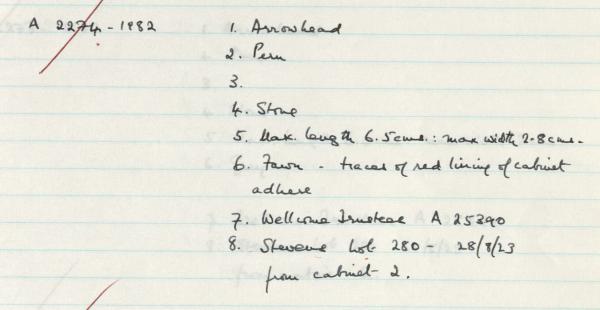 A 2274 - 1982 1. Arrowhead
2. Peru
3.
4. Stone
5. Max. length 6.5cms.: max width 2.8cms.
6. Fawn - traces of red lining of cabinet
adhere
7. Wellcome Trustees A 25390
8. Stevens Lot 280 - 28/8/23
from cabinet 2.